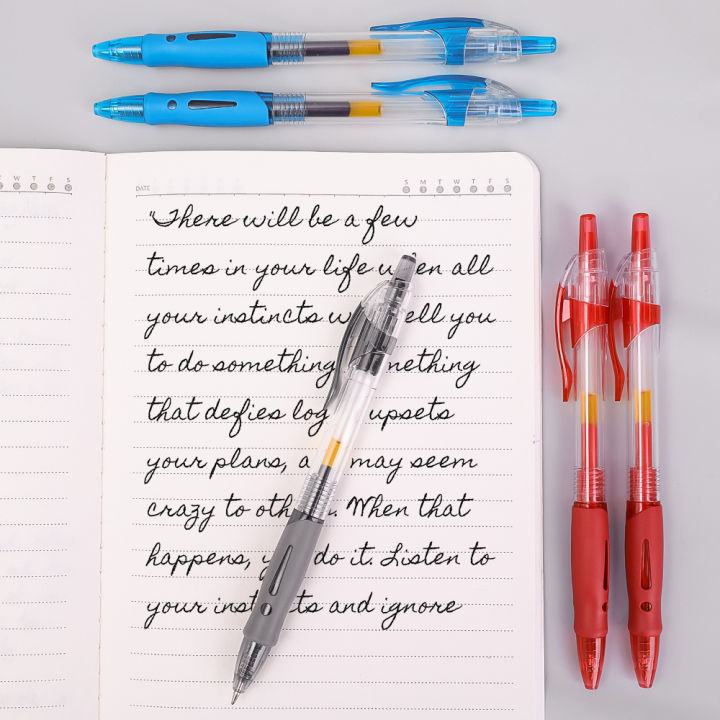 W T F S
DATE S M T W T F S
"There will be a few
times in your life when all
your instincts you
to do something, something
that defies upsets
your plans, may seem
crazy to When that
happens, do it. Listen to
your instincts and ignore